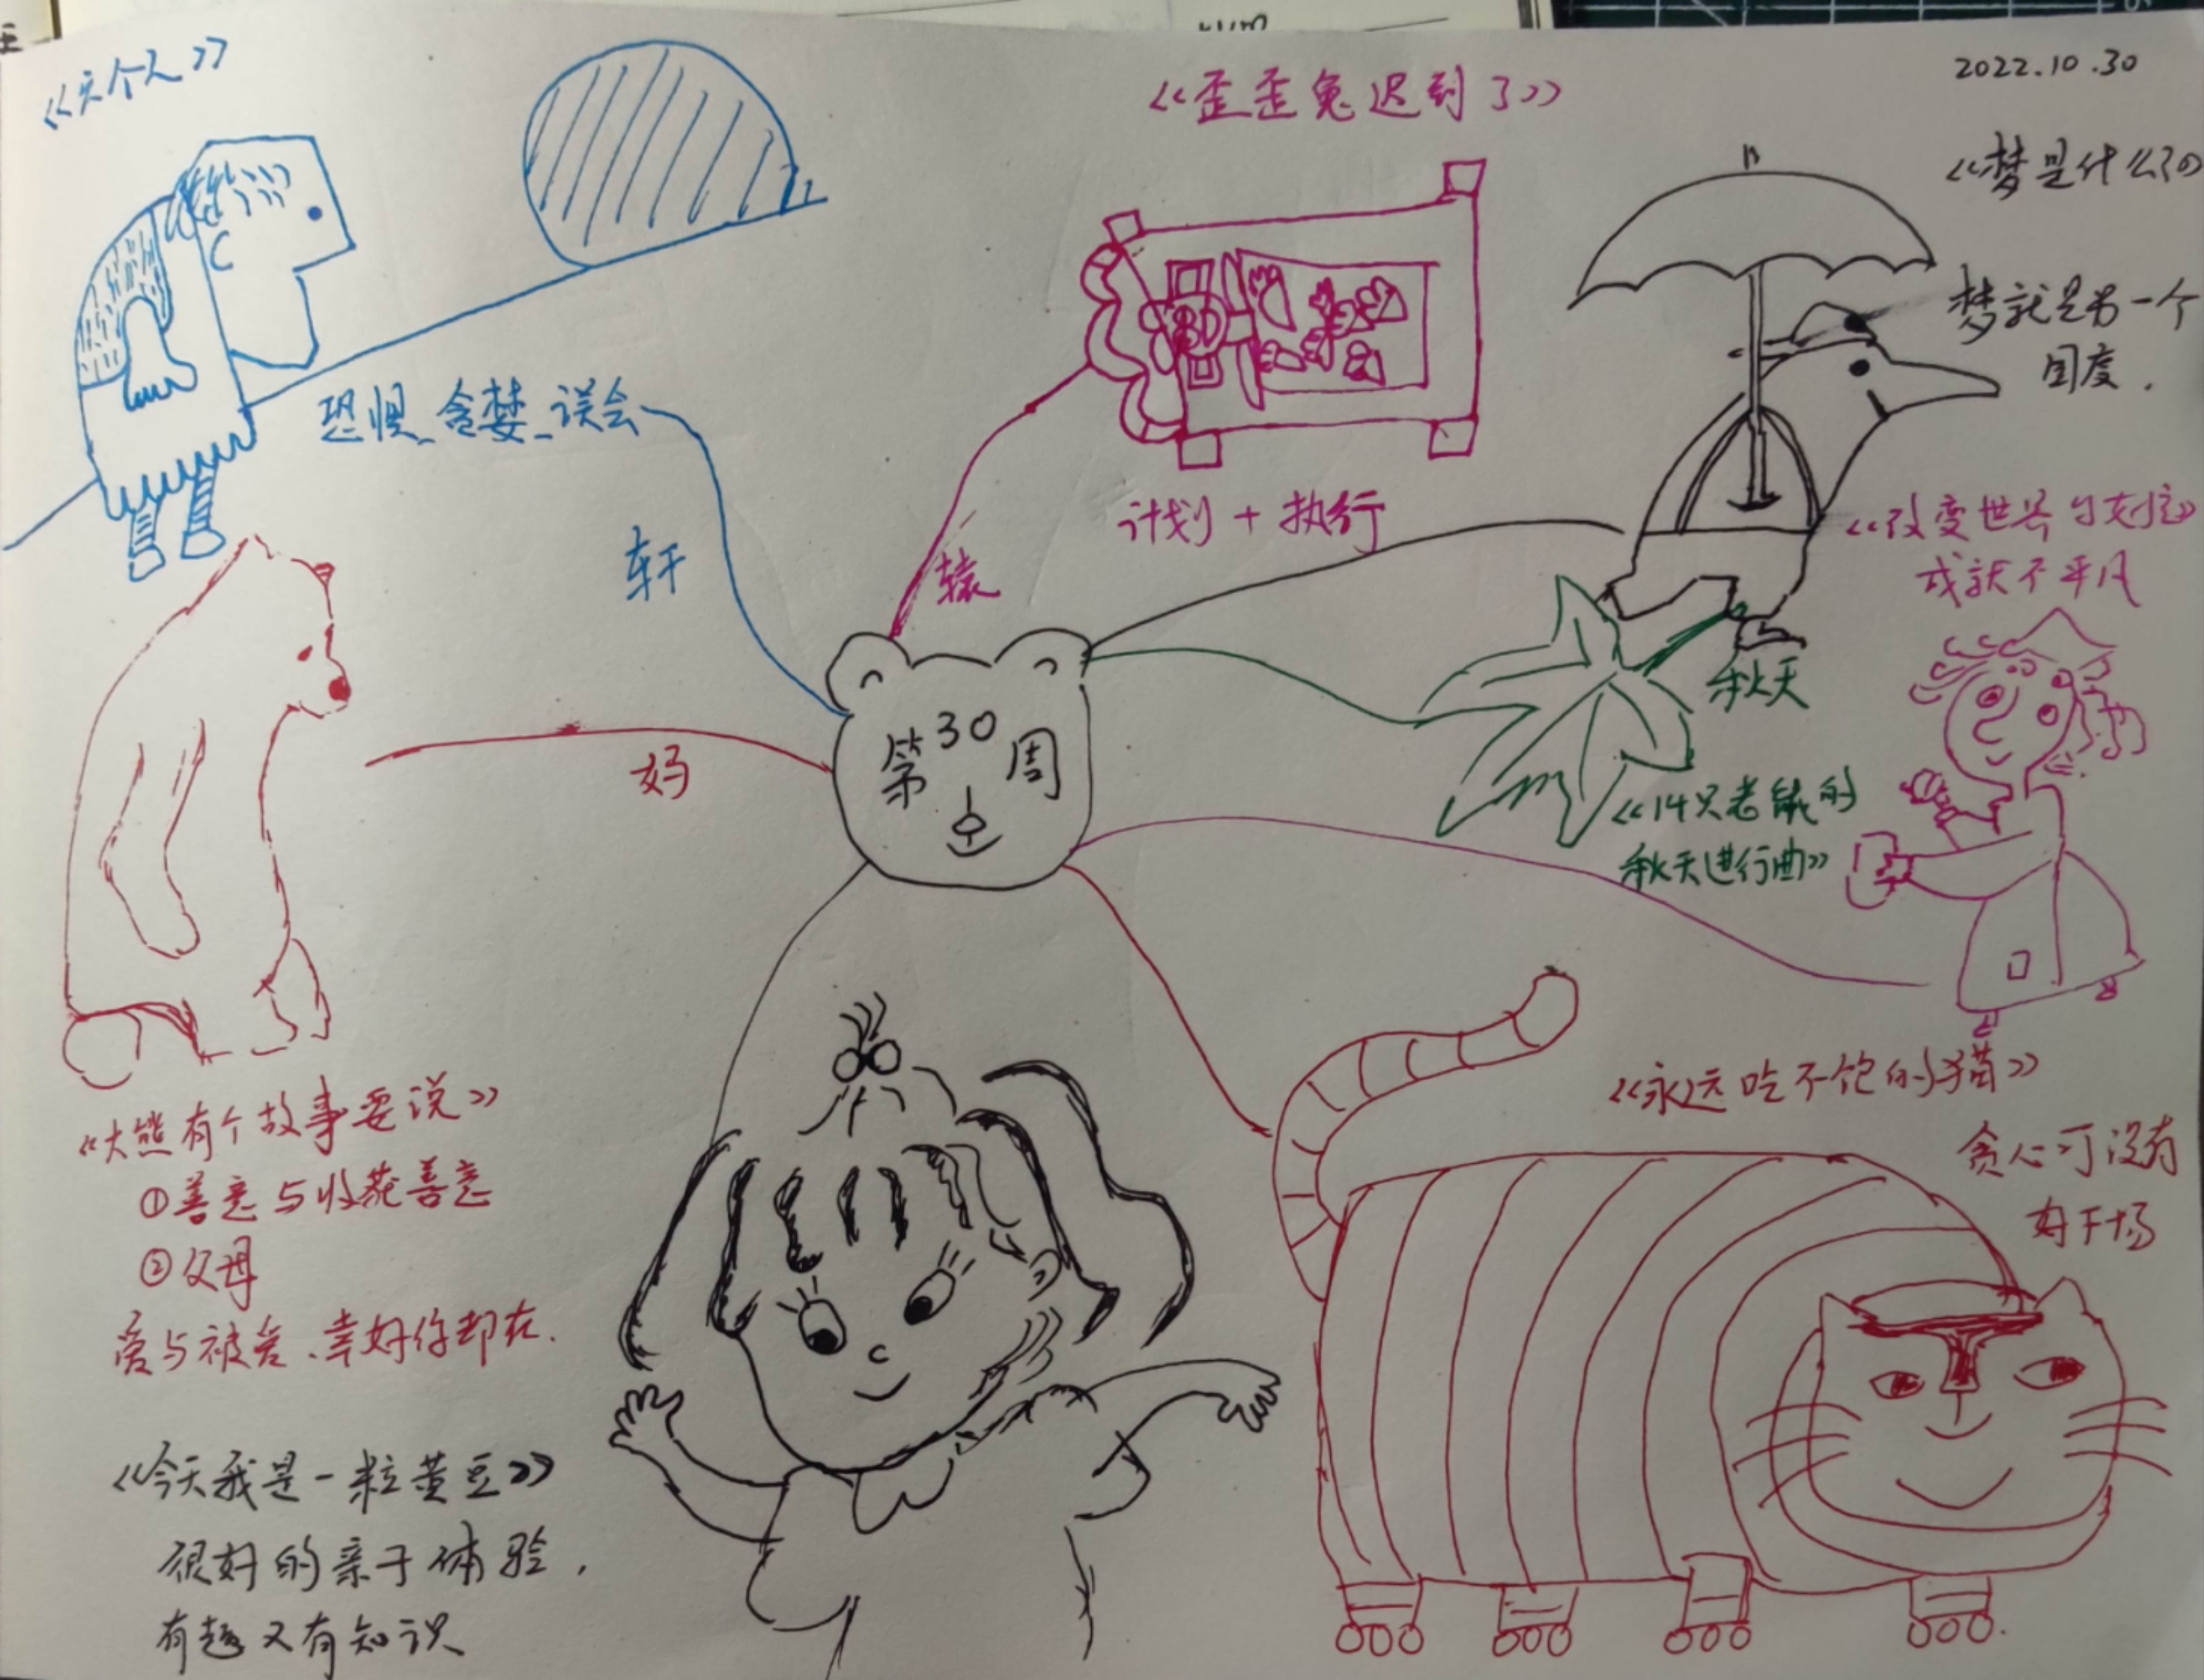 《六个人》
恐惧、贪婪、误会
轩
《歪歪兔迟到了》
计划+执行
辕
2022.10.30
《梦是什么》
梦就是另一个
国度.
《改变世界的女孩》
成就不平凡
第30周
秋天
《14只老鼠的
秋天进行曲》
妈
《大熊有个故事要说》
①善意与收获善意
②父母
爱与被爱、幸好你却在.
《永远吃不饱的猫》
贪心可没有
好下场
《今天我是一粒黄豆》
很好的亲子体验,
有趣又有知识